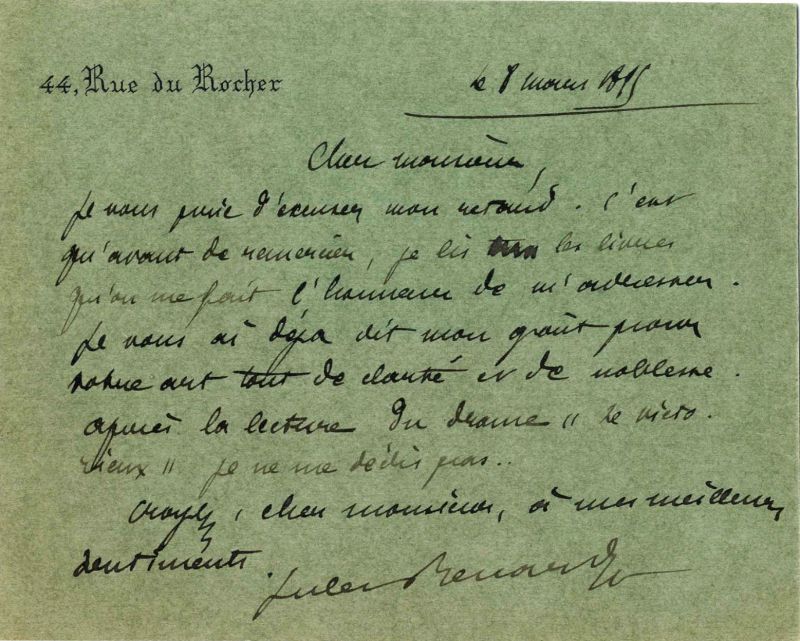 44, Rue du Rocher
le 8 mars 1895
Cher monsieur,
Je vous prie d'excuser mon retard. C'est
qu'avant de remercier, je lis les livres
qu'on me fait l'honneur de m'adresser.
Je vous ai déja dit mon goût pour
votre art tout de clarté et de noblesse.
après la lecture du drame " Le victo-
rieux " je ne me dédis pas..
Croyez, cher monsieur, à mes meilleurs
sentiments.
Jules Renard